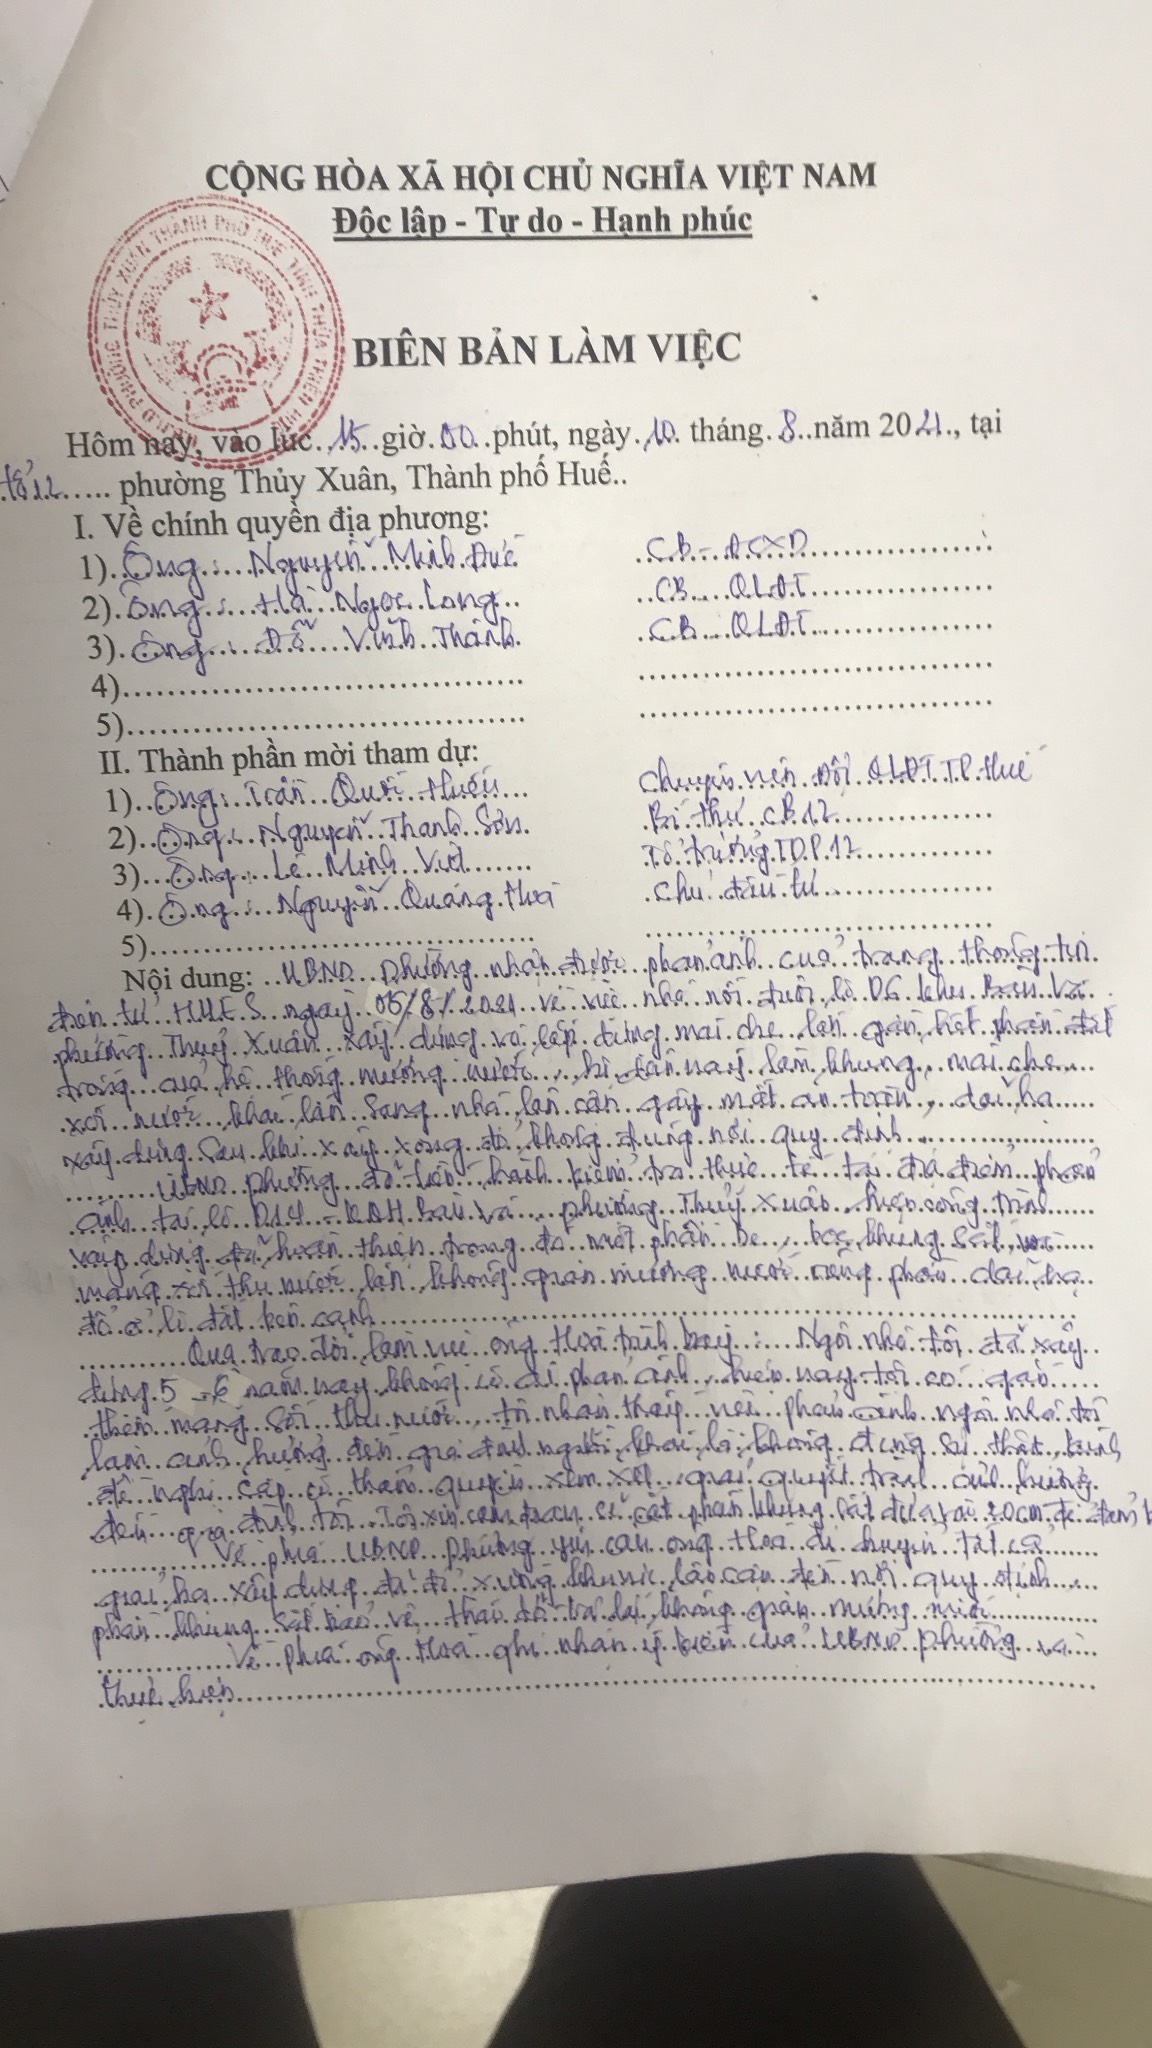 CỘNG HÒA XÃ HỘI CHỦ NGHĨA VIỆT NAM
Độc lập - Tự do - Hạnh phúc
PHƯỜNG THỦY XUÂN THÀNH PHỐ HUẾ TỈNH THỪA THIÊN HUẾ
BIÊN BẢN LÀM VIỆC
Hôm nay, vào lúc 15 giờ 00 phút, ngày 10 tháng 8 năm 2021, tại
tổ 12 phường Thủy Xuân, Thành phố Huế..
I. Về chính quyền địa phương:
1) Ông: Nguyễn Minh Đức CB - ĐCXD
2) Ông: Hà Ngọc Long CB QLĐT
3) Ông: Đỗ Vĩnh Thành CB QLĐT
4)
5)
II. Thành phần mời tham dự:
1) Ông: Trần Quốc chuyên viên Đội QLĐT TP Huế
2) Ông: Nguyễn Thanh Sơn Bí thư CB 12
3) Ông: Lê Minh Tổ trưởng TDP 12
4) Ông: Nguyễn Quang Hoà chủ đầu tư
5)
Nội dung: UBND phường nhận được phản ảnh của trang thông tin
điện tử HUE S ngày 05/8/2021 về việc nhà nối đuôi lô D6 khu Bàu Vá
phường Thuỷ Xuân xây dựng và lắp dựng mái che lấn gần hết phần đất
trống của hệ thống mương nước, hiện nay làm khung mái che
nước lấn sang nhà lân cận gây mất an toàn,
xây dựng sau khi xây xong đổ không đúng nơi quy định
UBND phường đã tiến hành kiểm tra thực tế tại địa điểm phản
ánh tại lô D14 - KQH Bàu Vá, phường Thuỷ Xuân, hiện công trình
xây dựng đã hoàn thiện trong đó một phần khung sắt và
máng xối thu nước lấn không gian mương nước
đổ ở lô đất bên cạnh
Qua trao đổi làm việc ông Hoà trình bày: Ngôi nhà tôi đã xây
dựng 5 - 6 năm nay không có ai phản ánh, hiện nay tôi có
thêm máng xối thu nước, tôi nhận thấy việc phản ánh ngôi nhà tôi
làm ảnh hưởng đến gia đình người khác là không đúng sự thật, kính
đề nghị cấp có thẩm quyền xem xét giải quyết tránh ảnh hưởng
đến gia đình tôi. Tôi xin cam đoan sẽ cắt phần khung sắt
Về phía UBND phường yêu cầu ông Hoà di chuyển tất cả
xây dựng đã đổ xuống khu vực lân cận đến nơi quy định,
phần khung sắt bảo vệ tháo dỡ trả lại không gian mương nước
Về phía ông Hoà ghi nhận ý kiến của UBND phường và
thực hiện